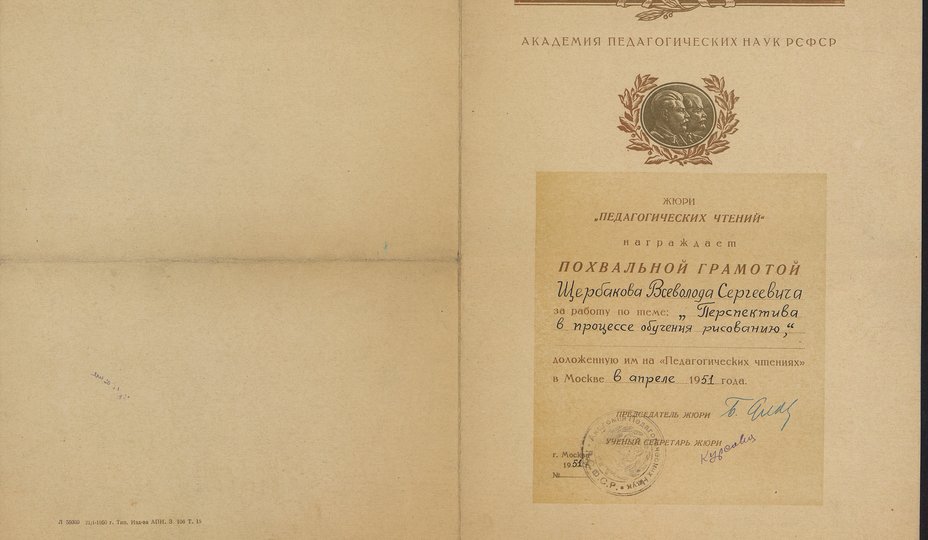 АКАДЕМИЯ ПЕДАГОГИЧЕСКИХ НАУК РСФСР
ЖЮРИ
„ПЕДАГОГИЧЕСКИХ ЧТЕНИЙ“
награждает
ПОХВАЛЬНОЙ ГРАМОТОЙ
Щербакова Всеволода Сергеевича
за работу по теме: „Перспектива
в процессе обучения рисованию,“
доложенную им на «Педагогических чтениях»
в Москве в апреле 1951 года.
ПРЕДСЕДАТЕЛЬ ЖЮРИ
УЧЕНЫЙ СЕКРЕТАРЬ ЖЮРИ
г. Москва
1951
№
Тип. Изд-ва АПН. З. 104 Т. 15